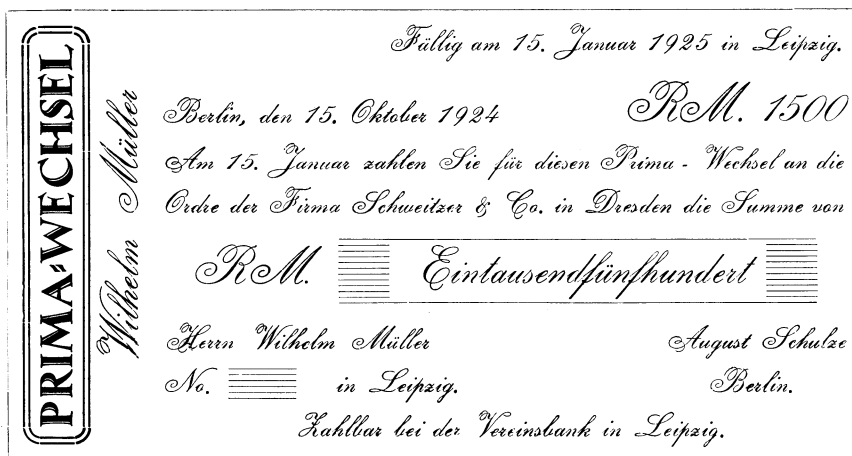 PRIMA-WECHSEL
Wilhelm Müller
Fällig am 15. Januar 1925 in Leipzig.
Berlin, den 15. Oktober 1924 RM. 1500
Am 15. Januar zahlen Sie für diesen Prima - Wechsel an die
Ordre der Firma Schweitzer & Co. in Dresden die Summe von
RM. Eintausendfünfhundert
Herrn Wilhelm Müller August Schulze
No. in Leipzig. Berlin.
Zahlbar bei der Vereinsbank in Leipzig.